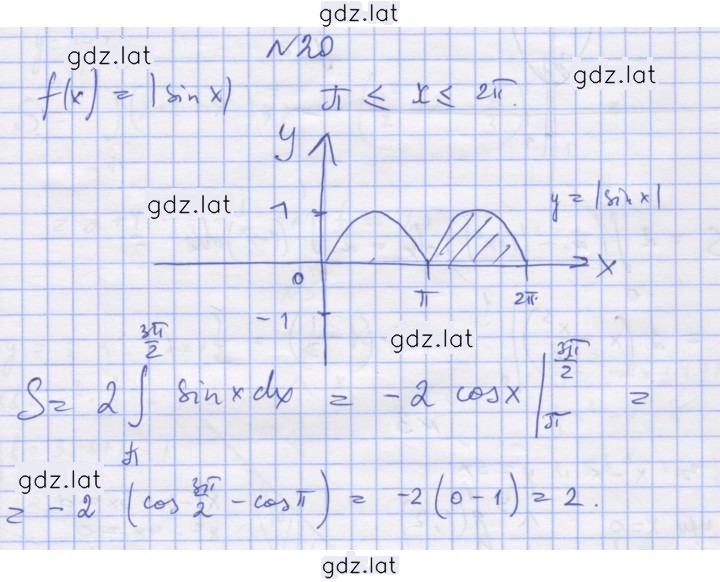 gdz.lat
N20
gdz.lat
f(x) = |sin x| π ≤ x ≤ 2π.
gdz.lat
y
gdz.lat
1
y = |sin x|
0 π 2π x
-1
gdz.lat
S = 2 ∫_π^{3π/2} sin x dx = -2 cos x |_π^{3π/2} =
gdz.lat
= -2 (cos 3π/2 - cos π) = -2(0-1) = 2.
gdz.lat